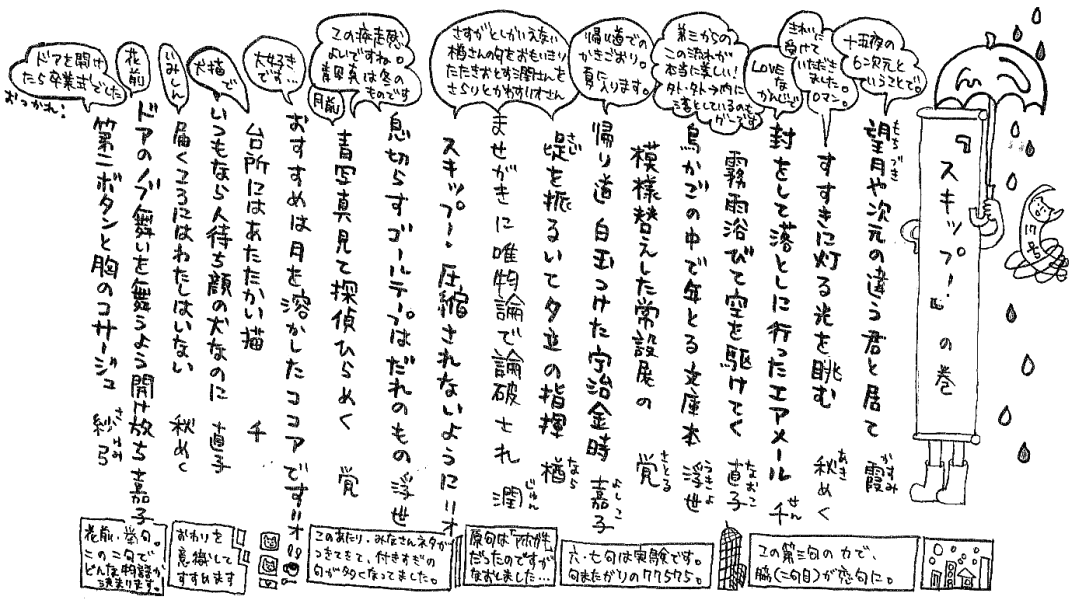 『スキップー』の巻
十五夜の
もう次元と
いうことで。
望月や次元の違う君と居て 霞
もちづき
かすみ
きれいに
受けて
いただき
ました。
ロマン。
すすきに灯る光を眺む 秋めく
あき
LOVE
な
かんじで
封をして落としに行ったエアメール 千
せん
霧雨浴びて空を駆けてく 直子
なおこ
第三からの
この流れが
本当に美しい!
外・外→内に
落としているのも
グーです
鳥かごの中で年とる文庫本 浮世
うきよ
模様替えした常設展の 覚
さとる
帰り道での
かきごおり。
夏に入ります。
帰り道白玉つけた宇治金時 嘉子
よしこ
匙を振るいて夕立の指揮 楢
さじ
なら
さすがとしかいえない
楢さんの句をおもいきり
たたきおとす潤さんを
さらりとかわすリオさん
ませがきに唯物論で論破され 潤
じゅん
スキップー・圧縮されないように リオ
この疾走感
よいですね。
青写真は冬の
ものです
息切らすゴールテープはだれのもの 浮世
月前
青写真見て探偵ひらめく 覚
大好き
です…
おすすめは月を溶かしたココアです リオ
台所にはあたたかい猫 千
犬猫で
いつもなら人待ち顔の犬なのに 直子
いみしん
届くころにはわたしはいない 秋めく
花前
ドアのノブ舞いを舞うよう開け放ち 嘉子
ドアを開け
たら卒業式でした
おつかれ!
第二ボタンと胸のコサージュ 紗弓
さゆみ
この第三句の力で、
脇(二句目)が恋句に。
六・七句は実験です。
句またがりの77575。
原句は
だったのですが
なおしました…
このあたり、みなさんネタが
つきてきて、付きすぎの
句が多くなってました。
おわりを
意識して
すすめます
花前・挙句。
この二句で
どんな物語か
決まります。